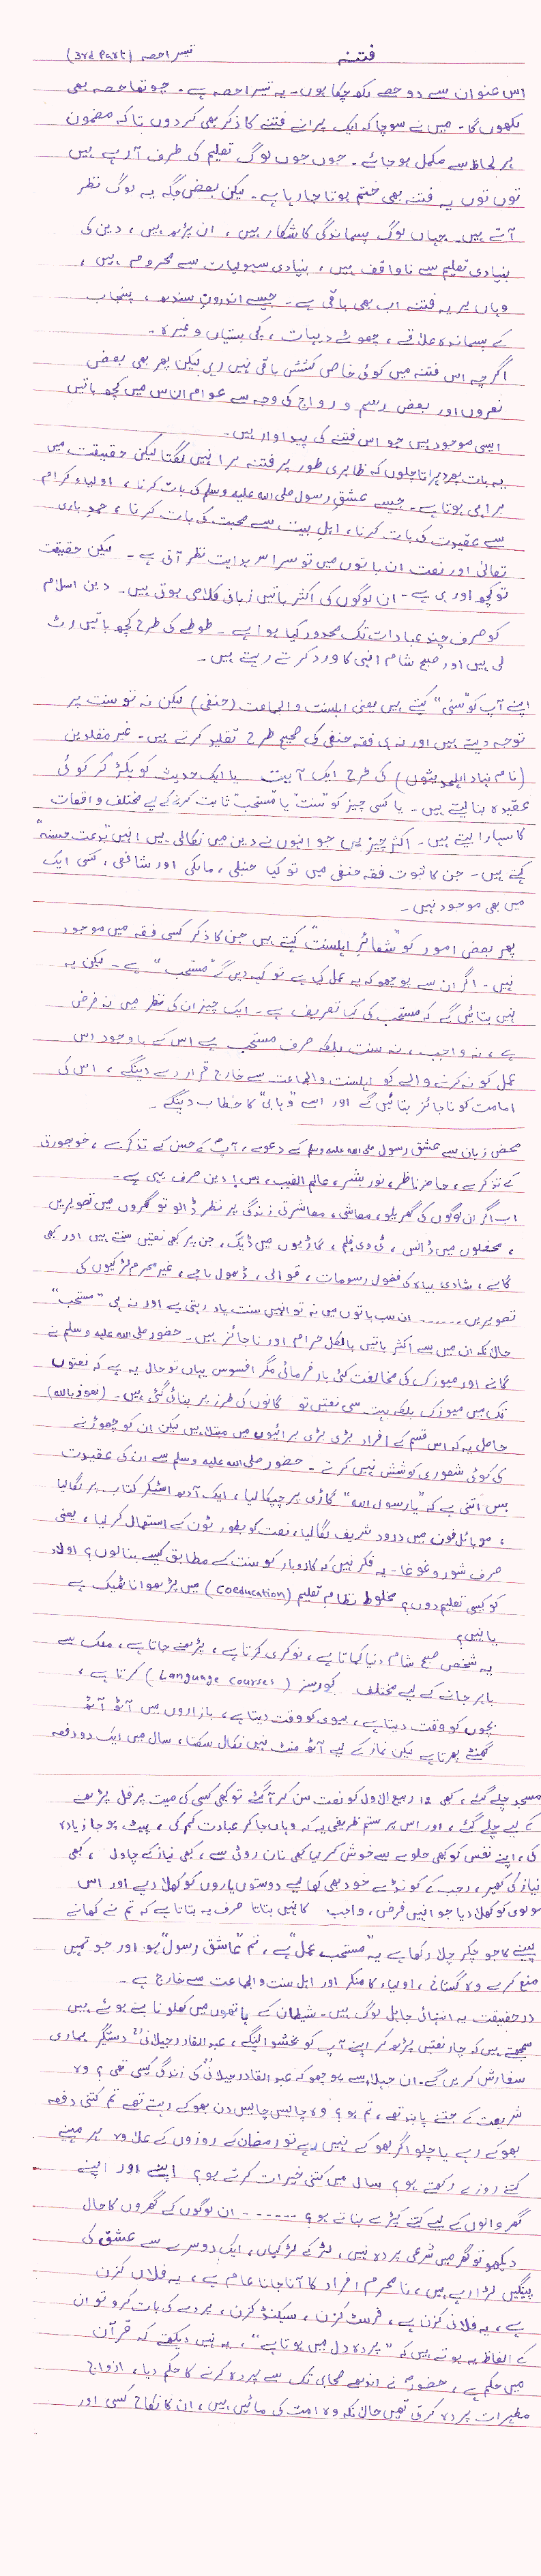 فتنہ
تیسرا حصہ (3rd Part)
اس عنوان سے دو حصے لکھ چکا ہوں۔ یہ تیسرا حصہ ہے۔ چوتھا حصہ بھی
لکھوں گا۔ میں نے سوچا کہ ایک پرانے فتنے کا ذکر بھی کر دوں تاکہ مضمون
ہر لحاظ سے مکمل ہو جائے۔ جوں جوں لوگ تعلیم کی طرف آ رہے ہیں
توں توں یہ فتنہ بھی ختم ہوتا جا رہا ہے۔ لیکن بعض جگہ یہ لوگ نظر
آتے ہیں۔ جہاں لوگ پسماندگی کا شکار ہیں، ان پڑھ ہیں، دین کی
بنیادی تعلیم سے ناواقف ہیں، بنیادی سہولیات سے محروم ہیں،
وہاں پر یہ فتنہ اب بھی باقی ہے۔ جیسے اندرون سندھ، پنجاب
کے پسماندہ علاقے، چھوٹے دیہات، کچی بستیاں وغیرہ۔
اگرچہ اس فتنہ میں کوئی خاص کشش باقی نہیں رہی لیکن پھر بھی بعض
نعروں اور بعض رسم و رواج کی وجہ سے عوام الناس میں کچھ باتیں
ایسی موجود ہیں جو اس فتنے کی پیداوار ہیں۔
یہ بات پھر دہراتا چلوں کہ ظاہری طور پر فتنہ برا نہیں لگتا لیکن حقیقت میں
برا ہی ہوتا ہے۔ جیسے عشقِ رسول صلی اللہ علیہ وسلم کی بات کرنا، اولیاء کرام
سے عقیدت کی بات کرنا، اہل بیت سے محبت کی بات کرنا، حمد باری
تعالیٰ اور نعت ان باتوں میں تو سراسر ہدایت نظر آتی ہے۔ لیکن حقیقت
تو کچھ اور ہی ہے۔ ان لوگوں کی اکثر باتیں زبانی کلامی ہوتی ہیں۔ دین اسلام
کو صرف چند عبادات تک محدود کیا ہوا ہے۔ طوطے کی طرح کچھ باتیں رٹ
لی ہیں اور صبح شام انہی کا ورد کرتے رہتے ہیں۔
اپنے آپ کو "سنی" کہتے ہیں یعنی اہلسنت والجماعت (حنفی) لیکن نہ تو سنت پر
توجہ دیتے ہیں اور نہ ہی فقہ حنفی کی صحیح طرح تقلید کرتے ہیں۔ غیر مقلدین
(نام نہاد اہلحدیثوں) کی طرح ایک آیت یا ایک حدیث کو پکڑ کر کوئی
عقیدہ بنا لیتے ہیں۔ یا کسی چیز کو "سنت" یا "مستحب" ثابت کرنے کے لیے مختلف واقعات
کا سہارا لیتے ہیں۔ اکثر چیزیں جو انہوں نے دین میں نکالی ہیں انہیں "بدعت حسنہ"
کہتے ہیں۔ جن کا ثبوت فقہ حنفی میں تو کیا حنبلی، مالکی اور شافعی، کسی ایک
میں بھی موجود نہیں۔
پھر بعض امور کو "شعائرِ اہلسنت" کہتے ہیں جن کا ذکر کسی فقہ میں موجود
نہیں۔ اگر ان سے پوچھو کہ یہ عمل کیا ہے تو کہہ دیں گے "مستحب" ہے۔ لیکن یہ
نہیں بتائیں گے کہ مستحب کی کیا تعریف ہے۔ ایک چیز ان کی نظر میں نہ فرض
ہے، نہ واجب، نہ سنت بلکہ صرف مستحب ہے اس کے باوجود اس
عمل کو نہ کرنے والے کو اہلسنت والجماعت سے خارج قرار دے دینگے، اس کی
امامت کو ناجائز بتائیں گے اور اسے "وہابی" کا خطاب دینگے۔
محض زبان سے عشقِ رسول صلی اللہ علیہ وسلم کے دعوے، آپ کے حسن کے تذکرے، خوبصورتی
کے تذکرے، حاضر ناظر، نور بشر، عالم الغیب، بس! دین صرف یہی ہے۔
اب اگر ان لوگوں کی گھریلو، معاشی، معاشرتی زندگی پر نظر ڈالو تو گھروں میں تصویریں
، محفلوں میں ڈانس، ٹی وی فلم، گاڑیوں میں ڈیک، جن پر کبھی نعتیں سنتے ہیں اور کبھی
گانے، شادی بیاہ کی فضول رسومات، قوالی، ڈھول باجے، غیر محرم لڑکیوں کی
تصویریں ...... ان سب باتوں میں نہ تو انہیں سنت یاد رہتی ہے اور نہ ہی "مستحب"
حالانکہ ان میں سے اکثر باتیں بالکل حرام اور ناجائز ہیں۔ حضور صلی اللہ علیہ وسلم نے
گانے اور میوزک کی مخالفت کئی بار فرمائی مگر افسوس یہاں تو حال یہ ہے کہ نعتوں
تک میں میوزک بلکہ بہت سی نعتیں تو گانوں کی طرز پر بنائی گئی ہیں۔ (نعوذ باللہ)
حاصل یہ کہ اس قسم کے افراد بڑی بڑی برائیوں میں مبتلا ہیں لیکن ان کو چھوڑنے
کی کوئی شعوری کوشش نہیں کرتے۔ حضور صلی اللہ علیہ وسلم سے ان کی عقیدت
بس اتنی ہے کہ "یا رسول اللہ" گاڑی پر چپکا لیا، ایک آدھ اسٹیکر کتاب پر لگا لیا
، موبائل فون میں درود شریف لگا لیا، نعت کو بطور ٹون کے استعمال کر لیا، یعنی
صرف شور و غوغا۔ یہ فکر نہیں کہ کاروبار کو سنت کے مطابق کیسے بنالوں؟ اولاد
کو کیسی تعلیم دوں؟ مخلوط نظام تعلیم (Coeducation) میں پڑھوانا ٹھیک ہے
یا نہیں؟
یہ شخص صبح شام دنیا کماتا ہے، نوکری کرتا ہے، پڑھنے جاتا ہے، ملک سے
باہر جانے کے لیے مختلف کورسز (Language Courses) کرتا ہے،
بچوں کو وقت دیتا ہے، بیوی کو وقت دیتا ہے، بازاروں میں آٹھ آٹھ
گھنٹے پھرتا ہے لیکن نماز کے لیے آٹھ منٹ نہیں نکال سکتا، سال میں ایک دو دفعہ
مسجد چلے گئے، کبھی 12 ربیع الاول کو نعت سن کر آ گئے تو کبھی کسی کی میت پر قل پڑھنے
کے لیے چلے گئے، اور اس پر ستم ظریفی یہ کہ وہاں جا کر عبادت کم کی، پیٹ پوجا زیادہ
کی، اپنے نفس کو کبھی حلوے سے خوش کر لیا کبھی نان روٹی سے، کبھی نیاز کے چاول، کبھی
نیاز کی کھیر، رجب کے کونڈے خود بھی کھا لیے دوستوں یاروں کو کھلا دیے اور اس
مولوی کو کھلا دیا جو انہیں فرض، واجب کا نہیں بتاتا صرف یہ بتاتا ہے کہ تم نے کھانے
پینے کا جو چکر چلا رکھا ہے یہ "مستحب عمل" ہے، تم "عاشق رسول" ہو اور جو تمہیں
منع کرے وہ گستاخ، اولیاء کا منکر اور اہل سنت والجماعت سے خارج ہے۔
درحقیقت یہ انتہائی جاہل لوگ ہیں۔ شیطان کے ہاتھوں میں کھلونا بنے ہوئے ہیں
سمجھتے ہیں کہ چار نعتیں پڑھ کر اپنے آپ کو بخشوا لینگے، عبدالقادر جیلانی دستگیر ہماری
سفارش کریں گے۔ ان جہلاء سے پوچھو کہ عبدالقادر جیلانی کی زندگی کیسی تھی؟ وہ
شریعت کے جتنے پابند تھے، تم ہو؟ وہ چالیس چالیس دن بھوکے رہتے تھے تم کتنی دفعہ
بھوکے رہے یا چلو اگر بھوکے نہیں رہے تو رمضان کے روزوں کے علاوہ ہر مہینے
کتنے روزے رکھتے ہو؟ سال میں کتنی خیرات کرتے ہو؟ اپنے اور اپنے
گھر والوں کے لیے کتنے کپڑے بناتے ہو؟ ...... ان لوگوں کے گھروں کا حال
دیکھو تو گھر میں شرعی پردہ نہیں، لڑکے لڑکیاں، ایک دوسرے سے عشق کی
پینگیں لڑا رہے ہیں، نامحرم افراد کا آنا جانا عام ہے، یہ فلاں کزن
ہے، یہ فلانی کزن ہے، فرسٹ کزن، سیکنڈ کزن، پردے کی بات کرو تو ان
کے الفاظ یہ ہوتے ہیں کہ "پردہ دل میں ہوتا ہے"، یہ نہیں دیکھتے کہ قرآن
میں حکم ہے، حضور نے اندھے صحابی تک سے پردہ کرنے کا حکم دیا، ازواج
مطہرات پردہ کرتی تھیں حالانکہ وہ امت کی مائیں ہیں، ان کا نکاح کسی اور